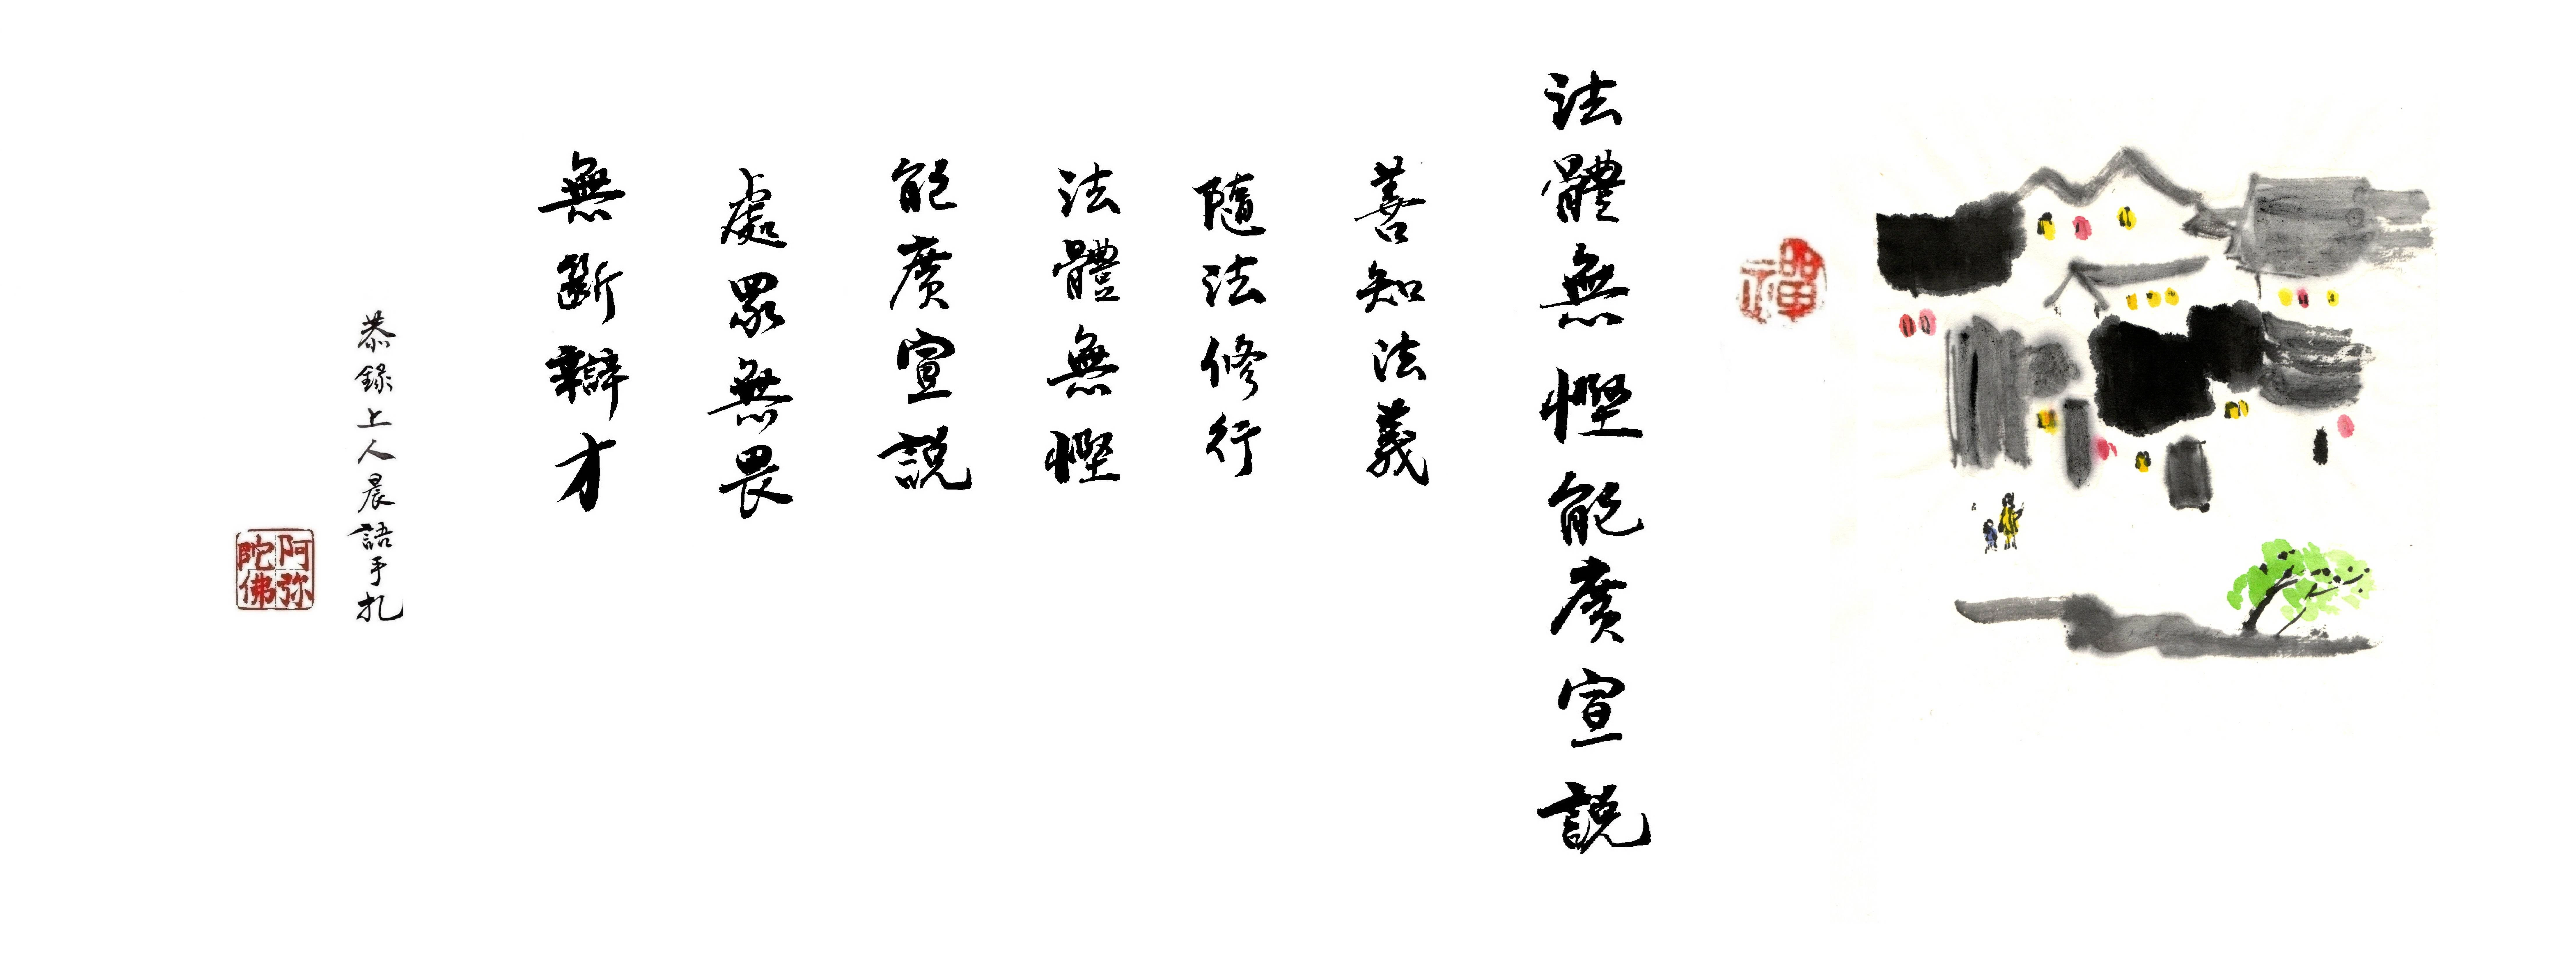 禪
法體無慳能廣宣説
善知法義
隨法修行
法體無慳
能廣宣説
處眾無畏
無斷辯才
恭錄上人晨語手札
阿弥陀佛